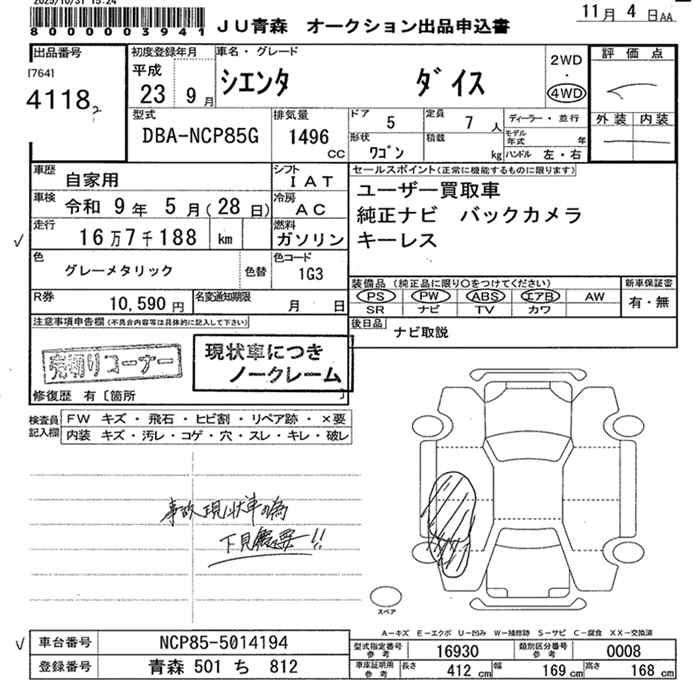 2025/10/31 15:24
8000003941
JU青森 オークション出品申込書
11月 4日AA
出品番号
[764]
4118 2
初度登録年月
平成
23 9月
車名・グレード
シエンタ ダイス
2WD
・
4WD
評価点
外装 内装
型式
DBA-NCP85G
排気量
1496
CC
ドア
5
定員
7 人
形状
ワゴン
積載
kg
ディーラー・並行
モデル年式 年
ハンドル 左・右
車歴
自家用
シフト
IAT
車検
令和 9年 5月(28日)
冷房
AC
走行
16万7千188 km
燃料
ガソリン
セールスポイント(正常に機能するものに限ります)
ユーザー買取車
純正ナビ バックカメラ
キーレス
色
グレーメタリック
色替
色コード
1G3
R券
10,590円
名変通知期限
月 日
装備品(純正品に限り○をつけてください)
PS PW ABS エアB AW
SR ナビ TV カワ
新車保証書
有・無
後日品
ナビ取説
注意事項申告欄(不具合内容等は具体的に記入して下さい)
売切りコーナー
現状車につき
ノークレーム
修復歴 有〔箇所 〕
検査員
記入欄
FW キズ・飛石・ヒビ割・リペア跡・×要
内装 キズ・汚レ・コゲ・穴・スレ・キレ・破レ
事故現状車の為
下見必要!!
スペア
A−キズ E−エクボ U−凹み W−補修跡 S−サビ C−腐食 XX−交換済
車台番号
NCP85-5014194
登録番号
青森 501 ち 812
型式指定番号
参考
16930
類別区分番号
参考
0008
車庫証明用
参考
長さ
412 cm
幅
169 cm
高さ
168 cm